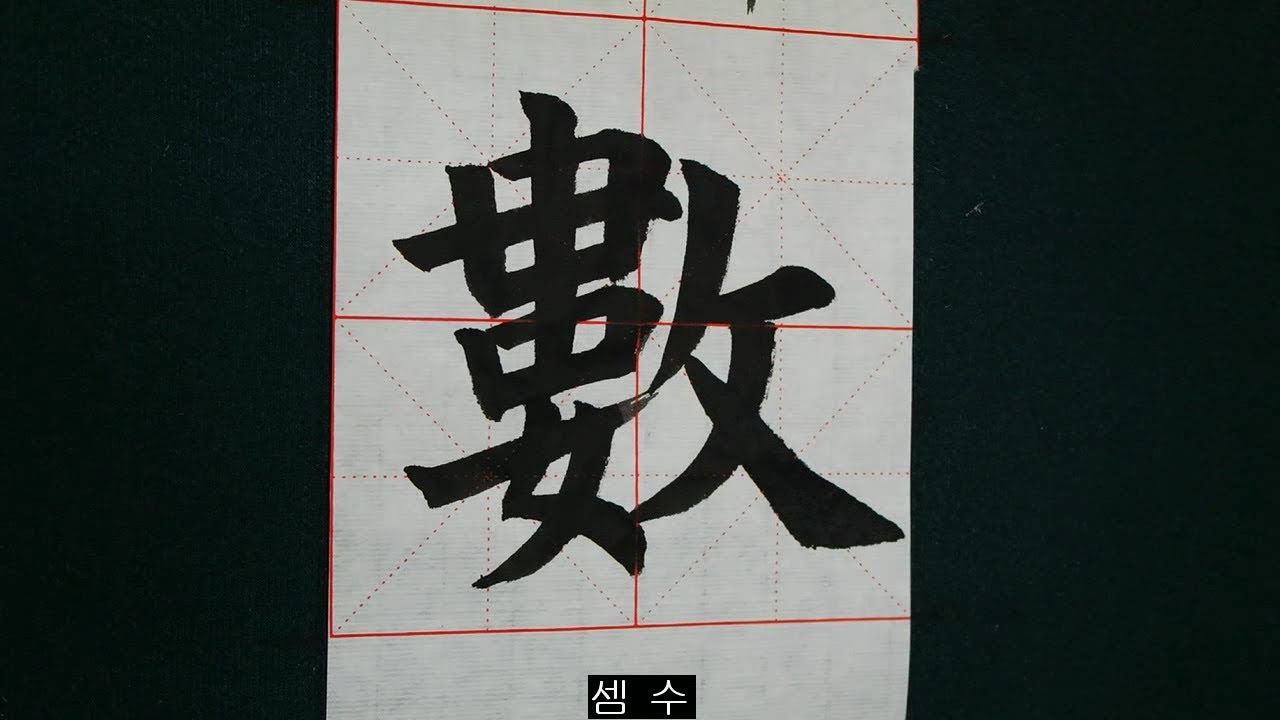 數
셈 수